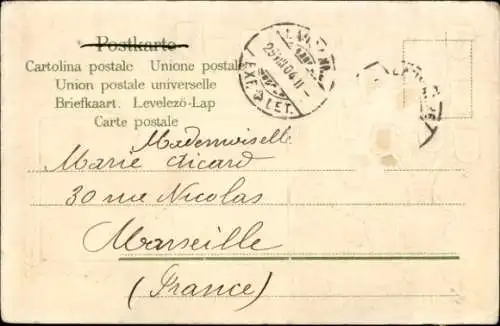 Postkarte
Cartolina postale Unione postale
Union postale universelle
Briefkaart. Levelező-Lap
Carte postale
29 VII 04 11
EXP. LET.
Mademoiselle
Marie Aicard
30 rue Nicolas
Marseille
(France)